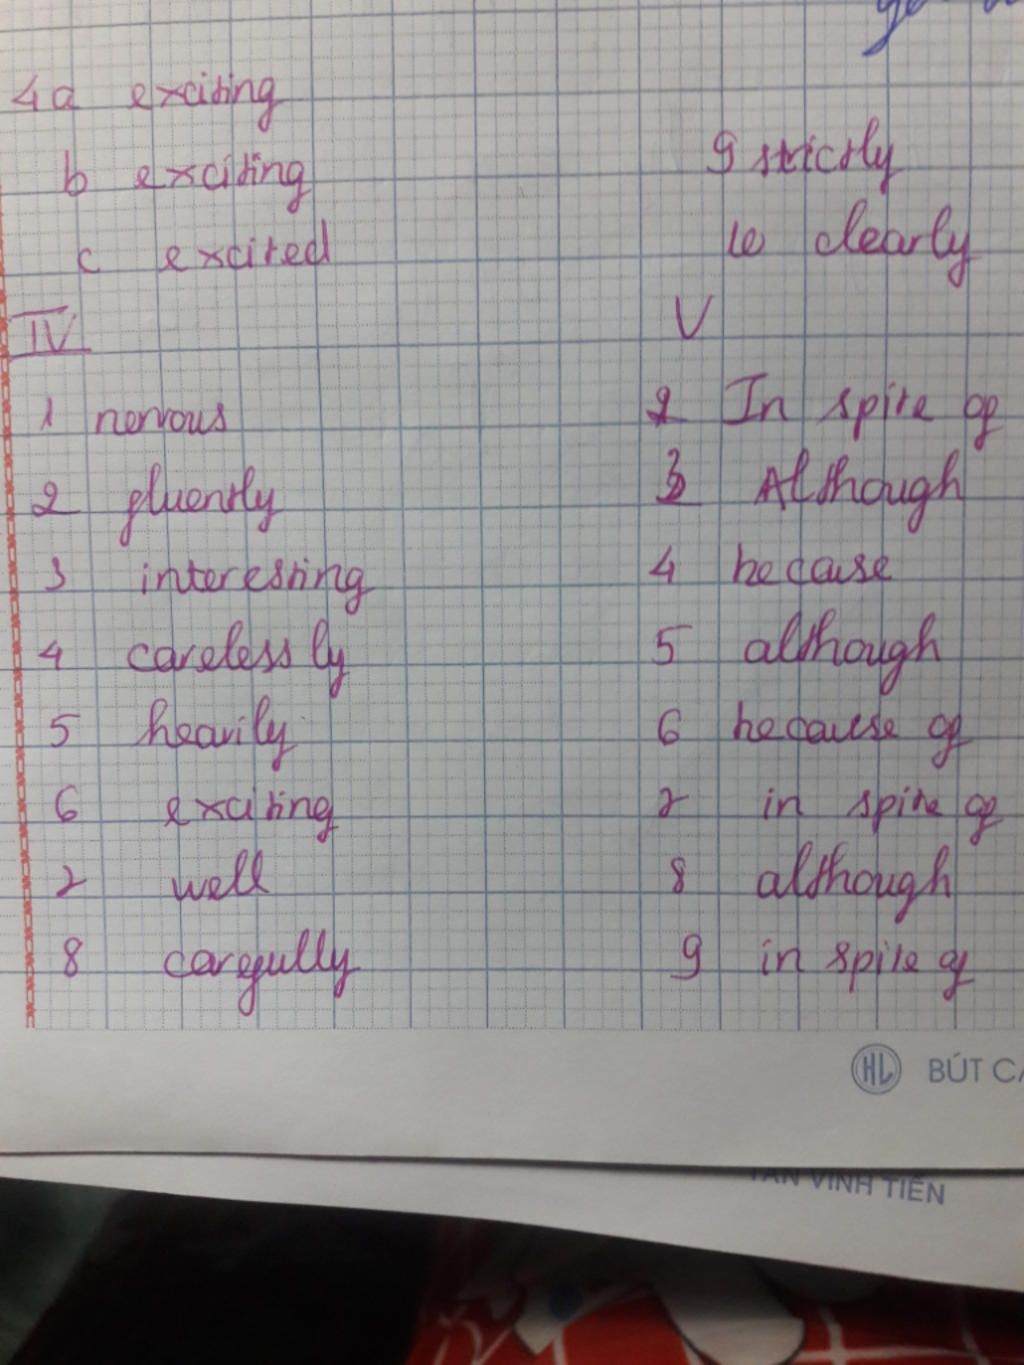 4a exciting
b exciting
c excited
IV
1 nervous
2 fluently
3 interesting
4 carelessly
5 heavily
6 exciting
7 well
8 carefully
9 strictly
10 clearly
V
2 In spite of
3 Although
4 because
5 although
6 because of
7 in spite of
8 although
9 in spite of
HL BÚT CA
TÂN VĨNH TIẾN